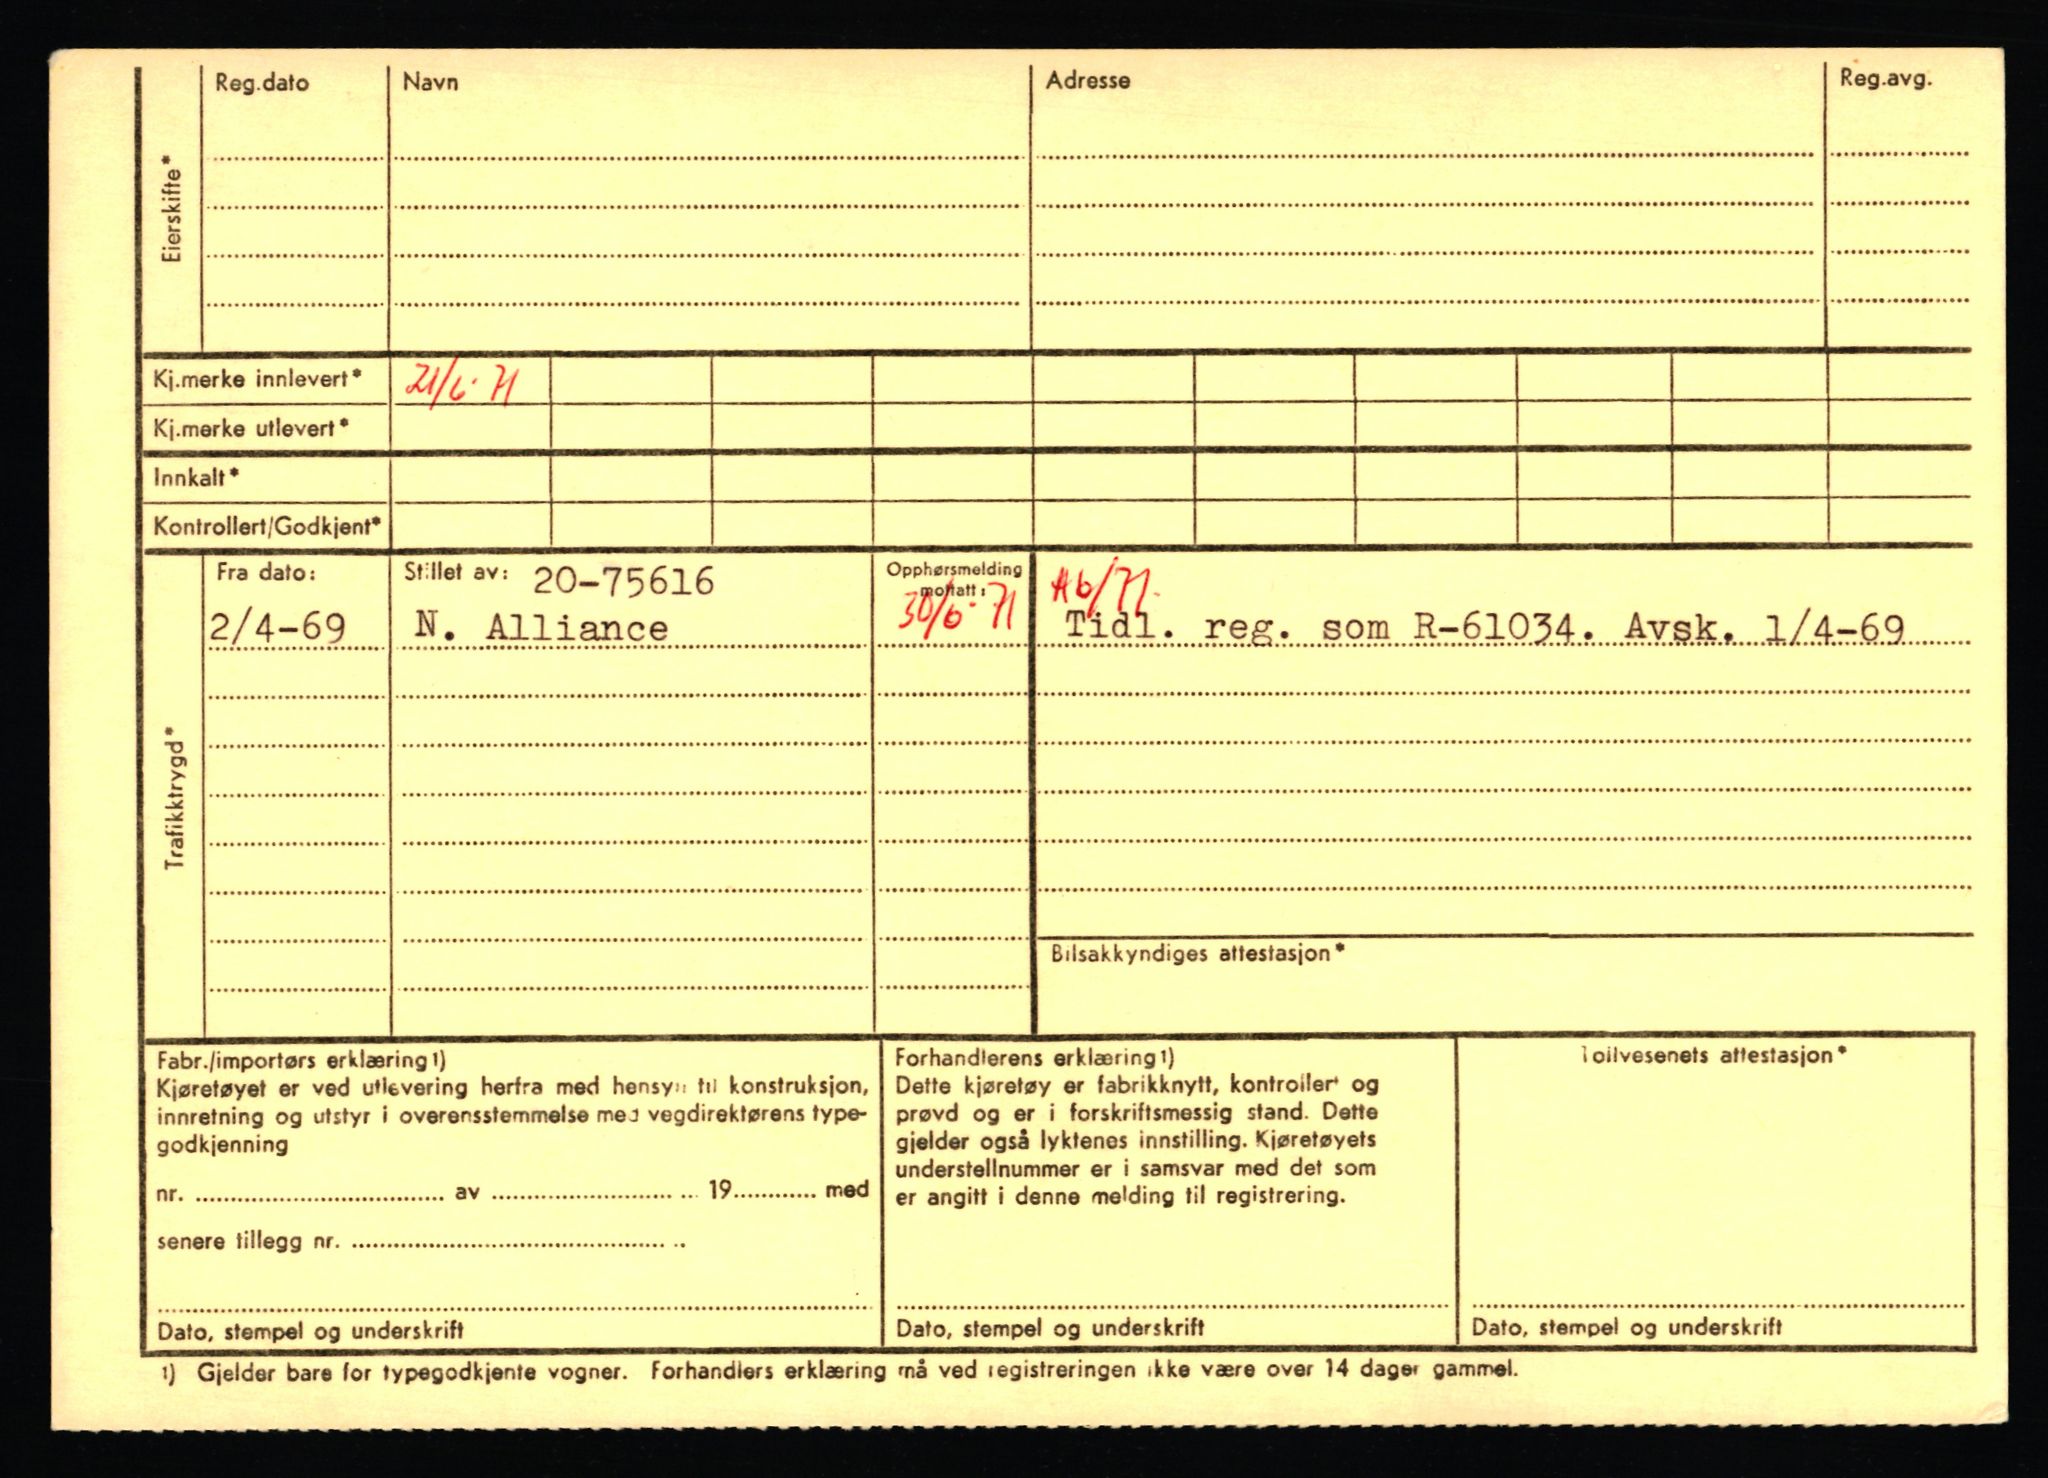 Reg.dato Navn Adresse Reg.avg.
Eierskifte*
Kj.merke innlevert* 21/6-71
Kj.merke utlevert*
Innkalt*
Kontrollert/Godkjent*
Trafikktrygd*
Fra dato: Stillet av: 20-75616 Opphørsmelding
mottatt: 30/6-71
2/4-69 N. Alliance
A6/71.
Tidl. reg. som R-61034. Avsk. 1/4-69
Bilsakkyndiges attestasjon*
Fabr./importørs erklæring1)
Kjøretøyet er ved utlevering herfra med hensyn til konstruksjon,
innretning og utstyr i overensstemmelse med vegdirektørens type-
godkjenning
nr. .................... av .................... 19............ med
senere tillegg nr. ....................
Dato, stempel og underskrift
Forhandlerens erklæring1)
Dette kjøretøy er fabrikknytt, kontrollert og
prøvd og er i forskriftsmessig stand. Dette
gjelder også lyktenes innstilling. Kjøretøyets
understellnummer er i samsvar med det som
er angitt i denne melding til registrering.
Dato, stempel og underskrift
Tollvesenets attestasjon*
Dato, stempel og underskrift
1) Gjelder bare for typegodkjente vogner. Forhandlers erklæring må ved registreringen ikke være over 14 dager gammel.